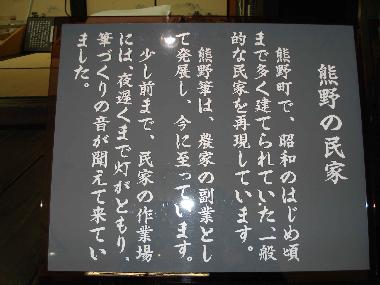 熊野の民家
熊野町で、昭和のはじめ頃
まで多く建てられていた、一般
的な民家を再現しています。
熊野筆は、農家の副業とし
て発展し、今に至っています。
少し前まで、民家の作業場
には、夜遅くまで灯がともり、
筆づくりの音が聞えて来てい
ました。